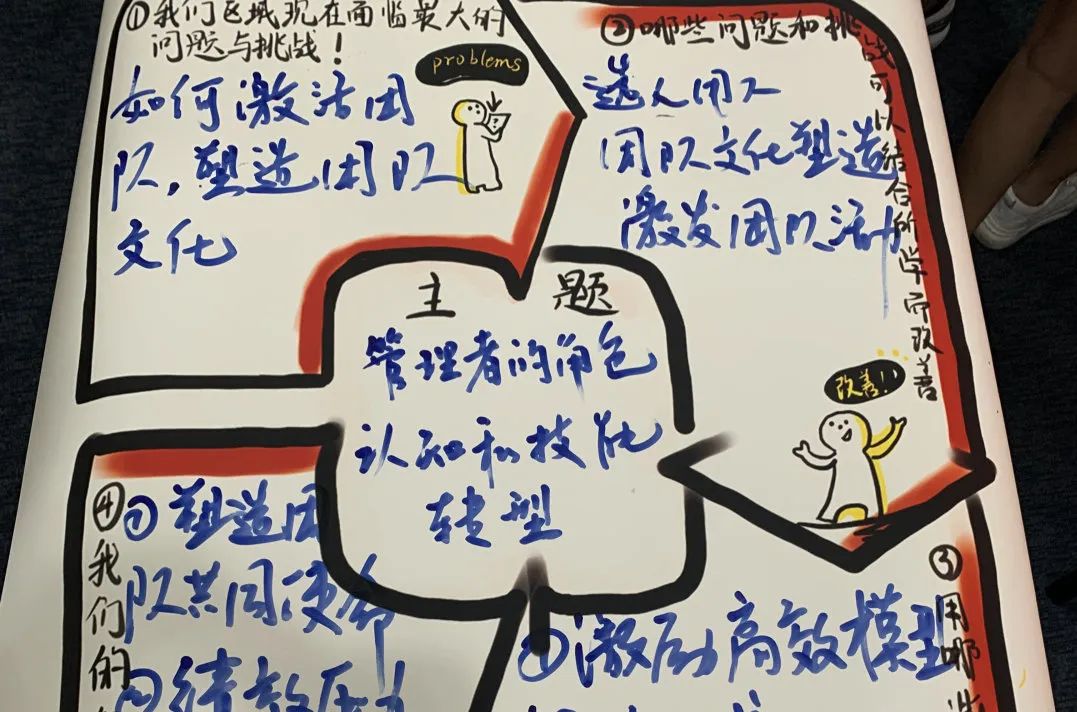 ①我们区域现在面临最大的
问题与挑战！
problems
如何激活团
队，塑造团队
文化
②哪些问题和挑战可以结合所学而改善
选人用人
团队文化塑造
激发团队活力
改善！
主 题
管理者的角色
认知和技能
转型
③用哪些
①激励高效模型
④我们的
①塑造团
队共同使命
②绩效压力